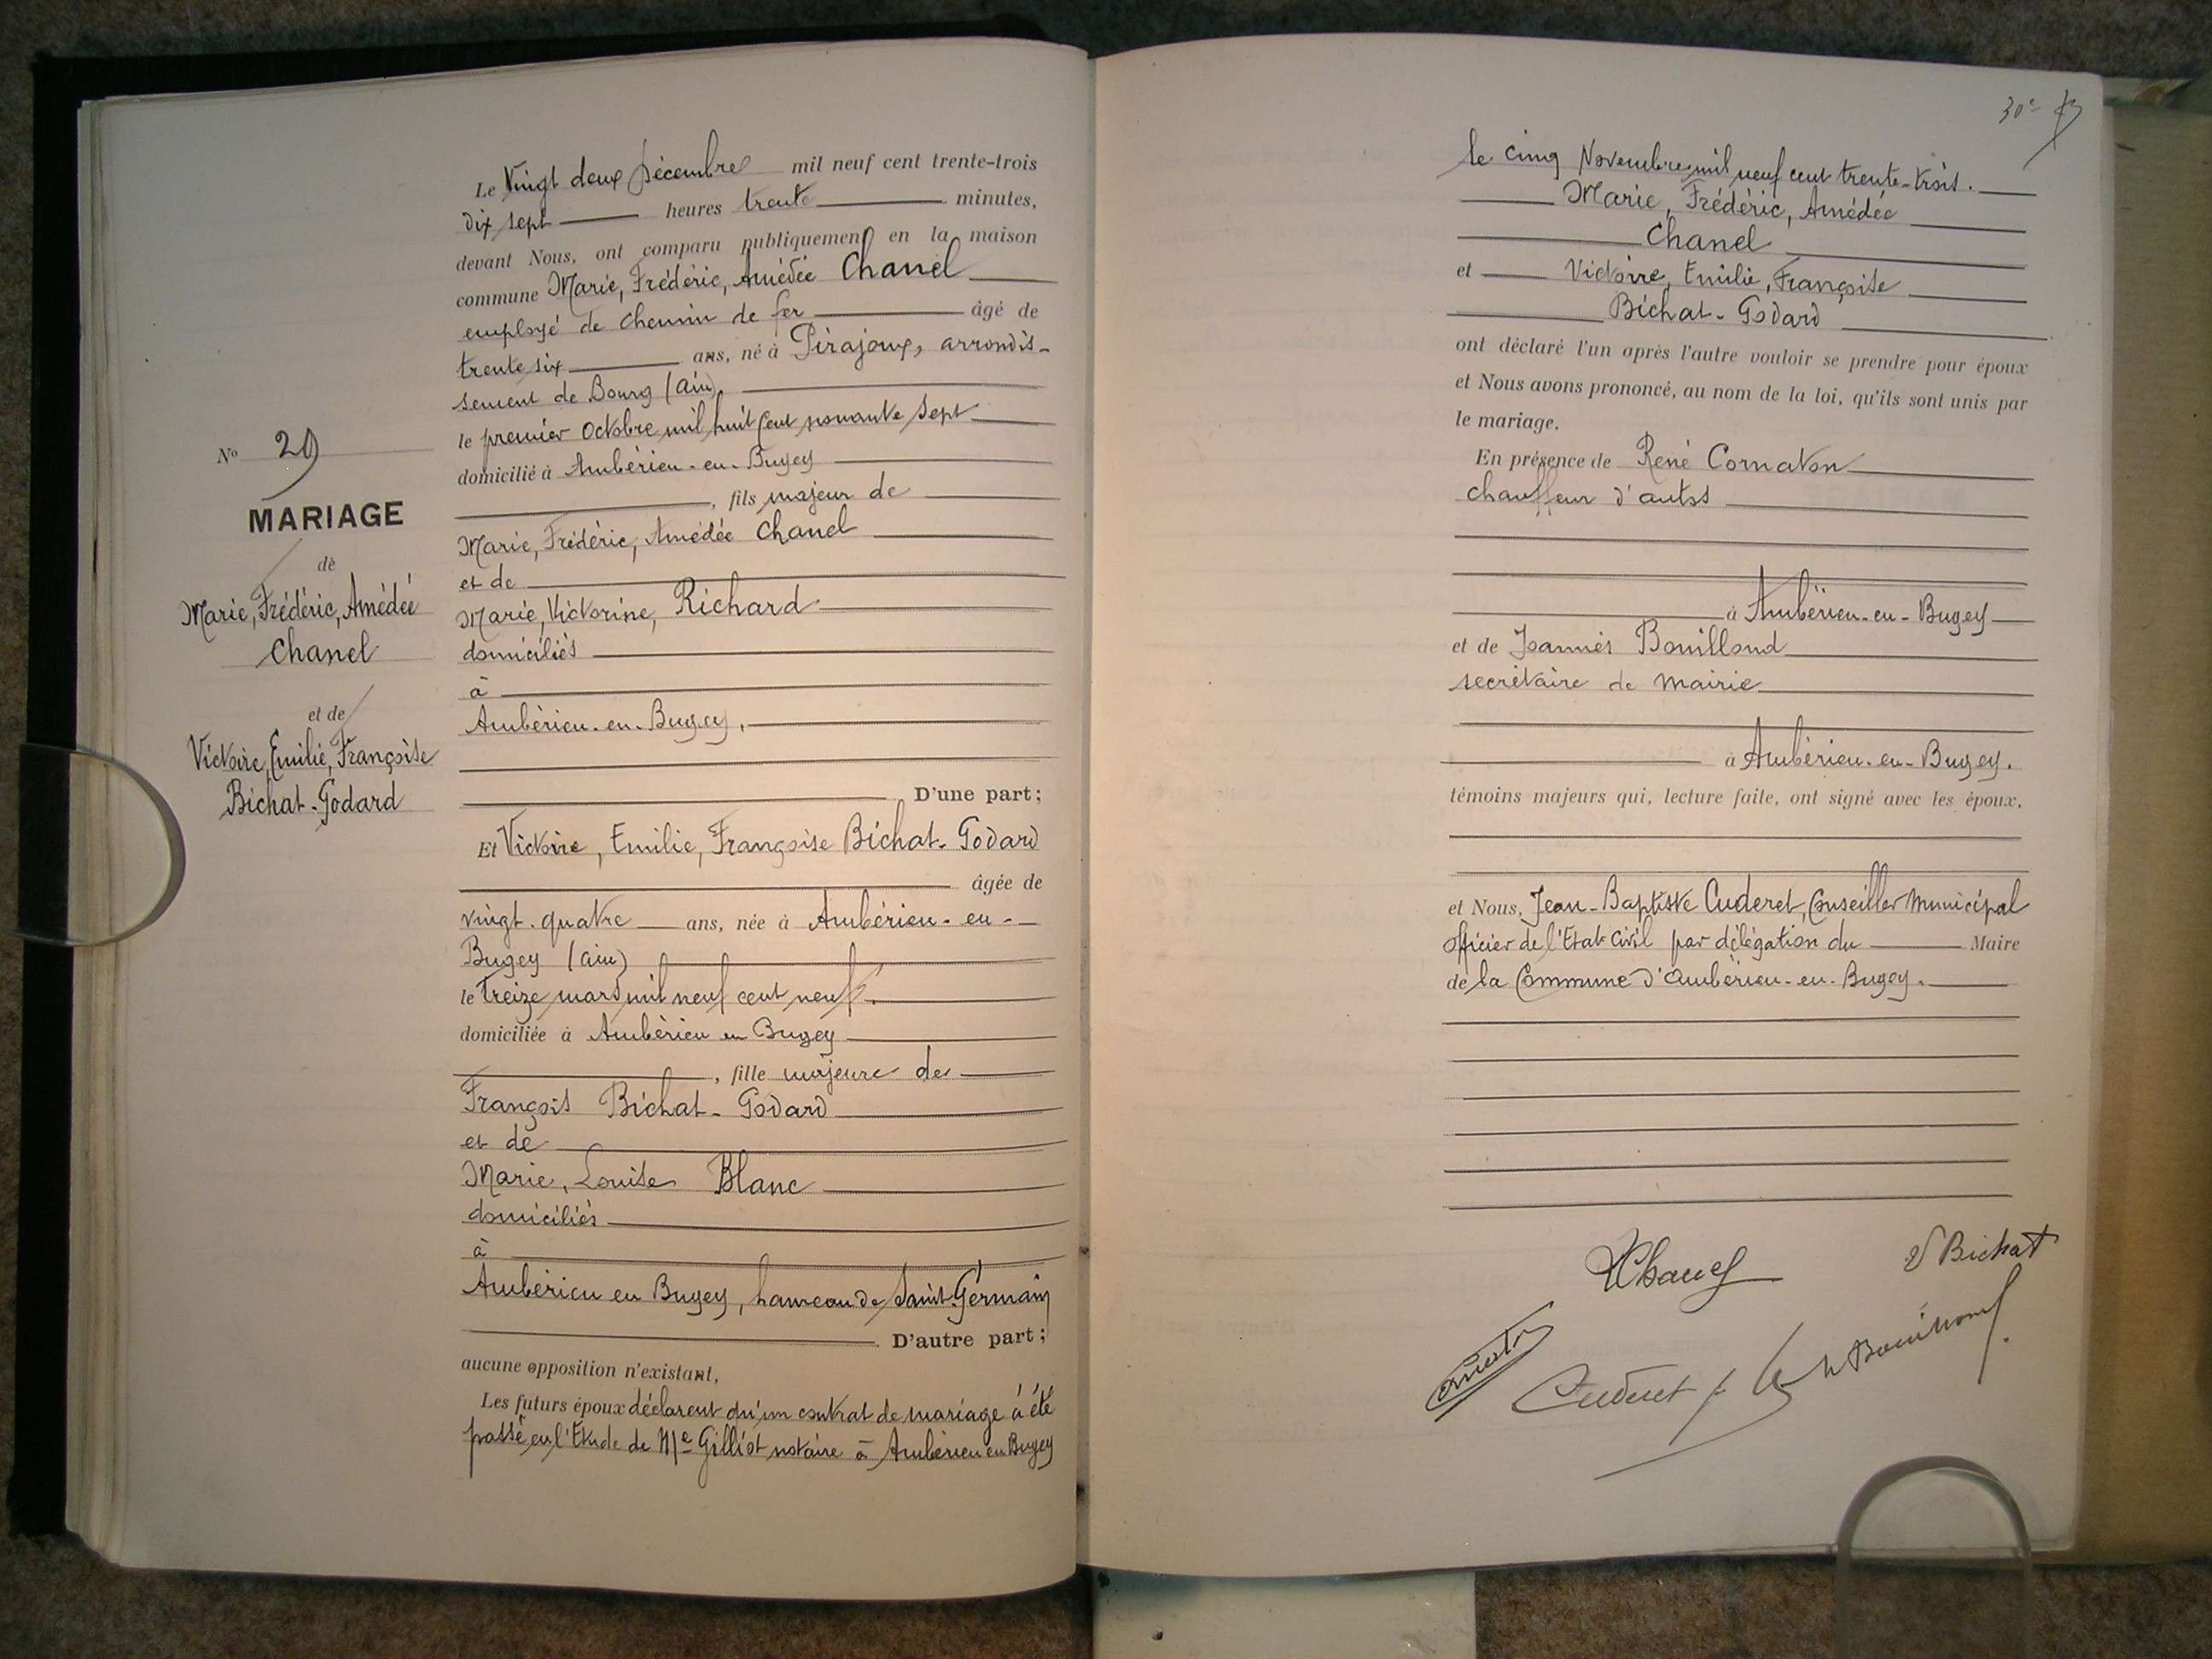 Nº 29
MARIAGE
de
Marie, Frédéric, Amédée
Chanel
et de
Victoire, Emilie, Françoise
Bichat-Godard
Le Vingt deux Décembre mil neuf cent trente-trois
dix sept heures trente minutes,
devant Nous, ont comparu publiquement en la maison
commune Marie, Frédéric, Amédée Chanel
employé de chemin de fer âgé de
trente six ans, né à Pirajoux, arrondis-
sement de Bourg (Ain),
le premier octobre mil huit cent nonante sept
domicilié à Ambérieu-en-Bugey
, fils majeur de
Marie, Frédéric, Amédée Chanel
et de
Marie, Victorine, Richard
domiciliés
à
Ambérieu-en-Bugey.
D'une part;
Et Victoire, Emilie, Françoise Bichat-Godard
âgée de
vingt-quatre ans, née à Ambérieu-en-
Bugey (Ain)
le treize mars mil neuf cent neuf.
domiciliée à Ambérieu en Bugey
, fille majeure de
François Bichat-Godard
et de
Marie, Louise Blanc
domiciliés
à
Ambérieu en Bugey, hameau de Saint-Germain
D'autre part;
aucune opposition n'existant,
Les futurs époux déclarent qu'un contrat de mariage a été
passé en l'Etude de Me Gilliot notaire à Ambérieu en Bugey
30e
le cinq Novembre mil neuf cent trente-trois.
Marie, Frédéric, Amédée
Chanel
et Victoire, Emilie, Françoise
Bichat-Godard
ont déclaré l'un après l'autre vouloir se prendre pour époux
et Nous avons prononcé, au nom de la loi, qu'ils sont unis par
le mariage.
En présence de René Cornaton
chauffeur d'autos
à Ambérieu-en-Bugey
et de Joannès Bouilloud
secrétaire de Mairie
à Ambérieu-en-Bugey.
témoins majeurs qui, lecture faite, ont signé avec les époux,
et Nous, Jean-Baptiste Cuderet, Conseiller Municipal
officier de l'Etat Civil par délégation du Maire
de la Commune d'Ambérieu-en-Bugey.
Chanel
V Bichat
Cuderet
Bouilloud